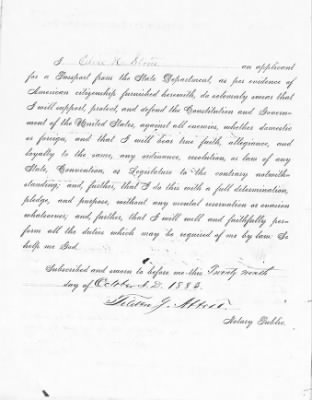 I, an applicant
for a Passport from the State Department, as per evidence of
American citizenship furnished herewith, do solemnly swear that
I will support, protect, and defend the Constitution and Govern-
ment of the United States, against all enemies, whether domestic
or foreign, and that I will bear true faith, allegiance, and
loyalty to the same, any ordinance, resolution, or law of any
State, Convention, or Legislature to the contrary notwith-
standing; and, further, that I do this with a full determination,
pledge, and purpose, without any mental reservation or evasion
whatsoever; and, further, that I will well and faithfully per-
form all the duties which may be required of me by law. So
help me God.
Subscribed and sworn to before me this Twenty
day of October A.D. 1883.
J. Abbott
Notary Public.